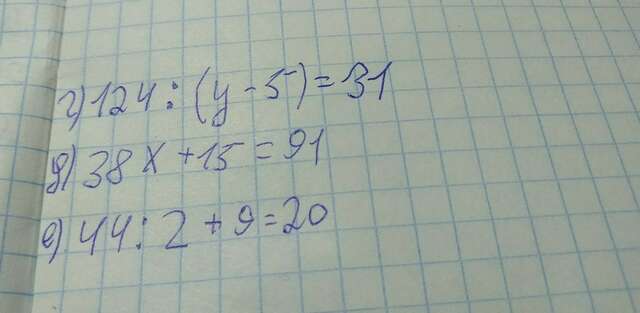 г) 124 : (y - 5) = 31
д) 38 x + 15 = 91
е) 44 : z + 9 = 20